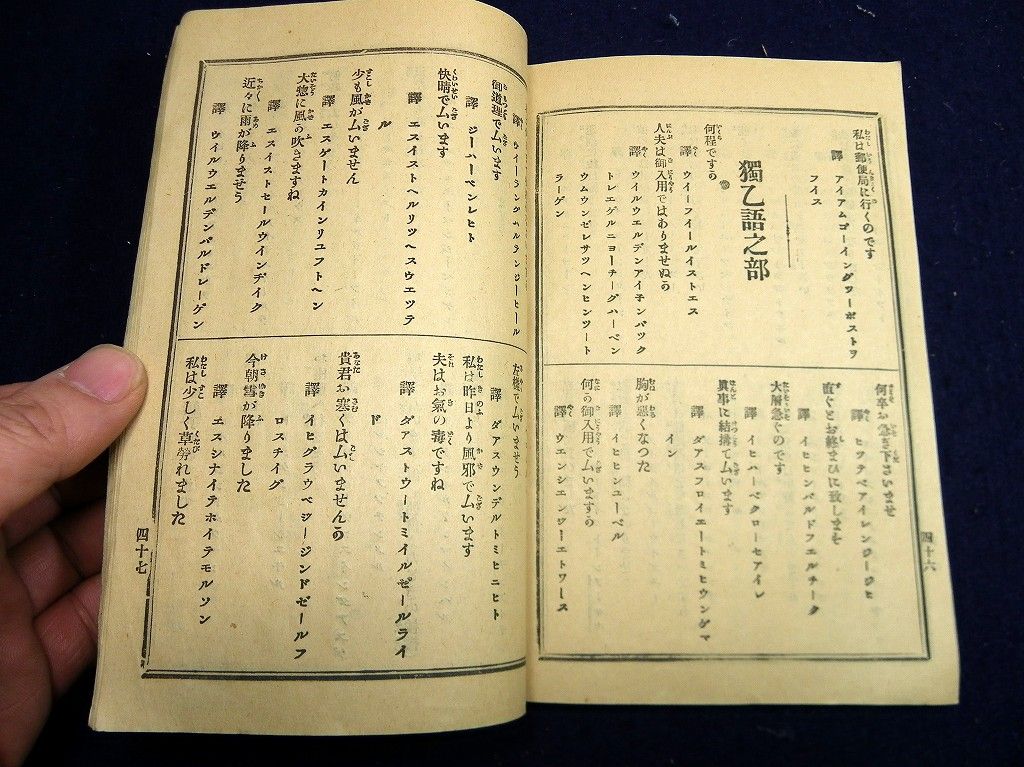 私は郵便局に行くのです
譯 アイアムゴーイングツーポストヲ
フイス
獨乙語之部
何程ですの
譯 ウイーフイールイストエス
人夫は御入用ではありませぬの
譯 ウイルウエルデンアイネンパツク
トレエゲルニヨーチーグハーベン
譯 ウムウンゼレサツヘンヒンツート
ラーゲン
何卒お急ぎ下さいませ
直ぐとお終まひに致しませ
譯 イヒヒンバルドフエルチーク
大層急ぐのです
譯 イヒハーベクローセアイレ
眞事に結搆で厶います
譯 ダアスフロイエートミヒウンゲマ
イン
胸が悪くなつた
譯 イヒヒンユーベル
何の御入用で厶いますの
譯 ウエンシエンワーエトワース
四十六
御道理で厶います
譯 ジーハーベンレヒト
快晴で厶います
譯 エスイストヘルリツヘスウエツテ
ル
少も風が厶いません
譯 エスゲートカインリユフトヘン
大惣に風の吹きますね
譯 エスイストセールウインヂイク
近々に雨が降りませう
譯 ウイルウエルデンバルドレーゲン
左樣で厶いませう
譯 ダアスウンデルトミヒニヒト
私は昨日より風邪で厶います
夫はお氣の毒ですね
譯 ダアストウートミイルゼールライ
ド
貴君お寒くは厶いませんの
譯 イヒグラウベジージンドゼールフ
ロスチイグ
今朝雪が降りました
譯 エスシナイテホイテモルソン
私は少しく草勞れました
四十七